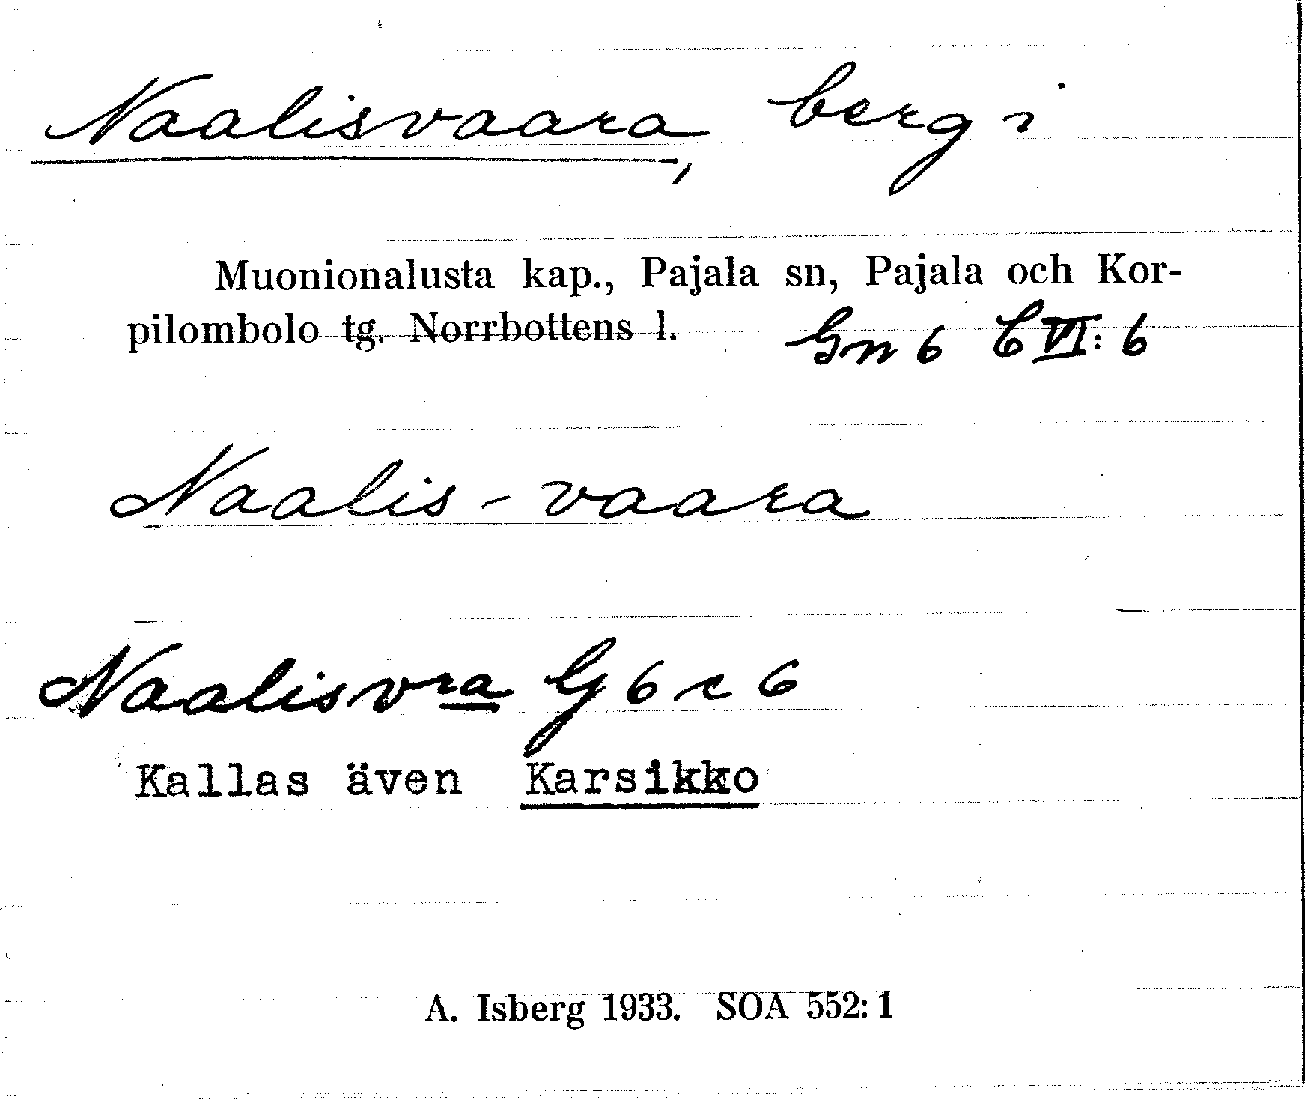 Naalisvaara, berg i
Muonionalusta kap., Pajala sn, Pajala och Kor-
pilombolo tg. Norrbottens l. Gn 6 C VI: 6
Naalis-vaara
Naalisvra G 6 c 6
Kallas även Karsikko
A. Isberg 1933. SOA 552:1